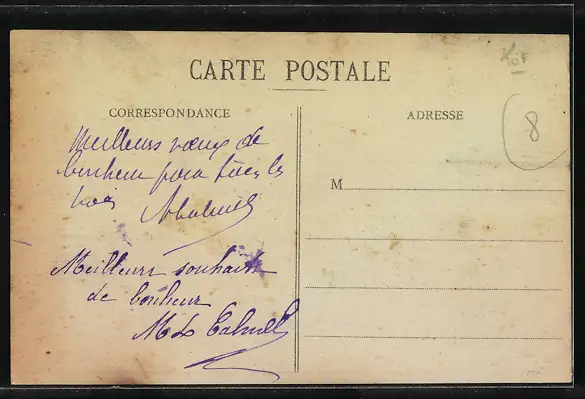 CARTE POSTALE
CORRESPONDANCE
ADRESSE
Meilleurs vœux de
bonheur pour tous les
trois
Meilleurs souhaits
de bonheur
M
8